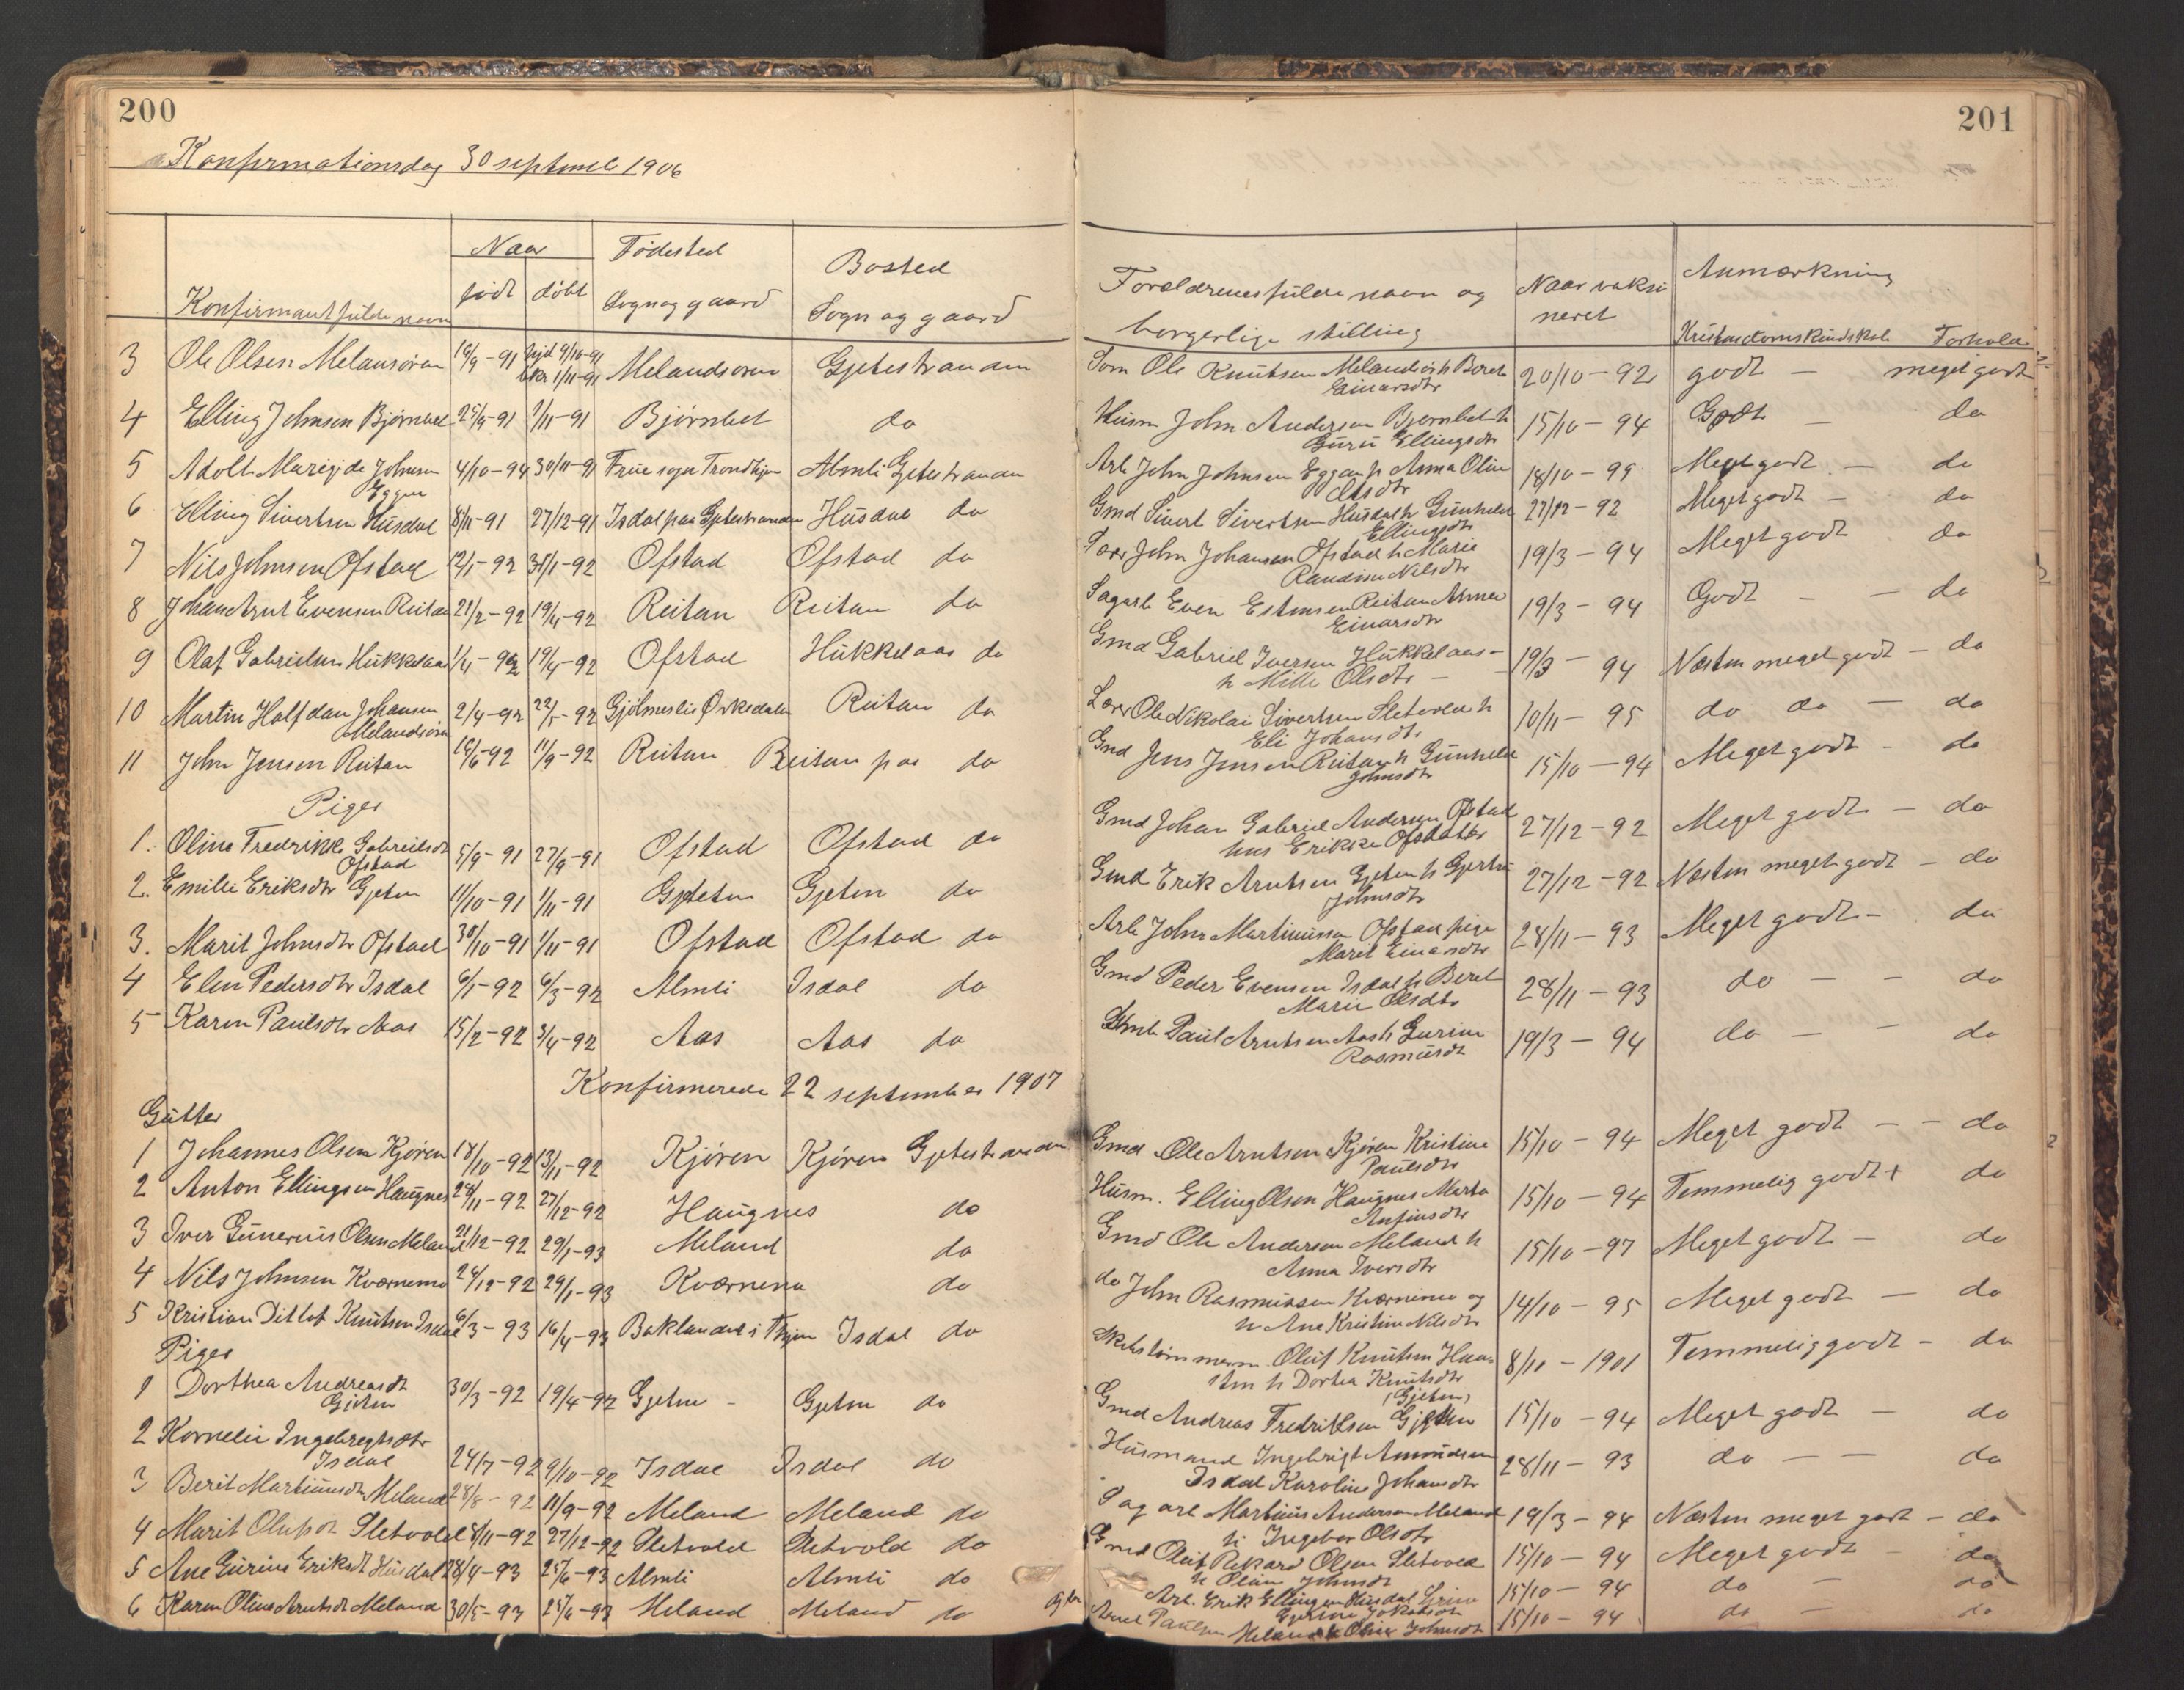 200
Konfirmationsdag 30 septemb 1906
Naar
Fødested
Bosted
født døbt
Sogn og gaard
Sogn og gaard
Konfirmant fulde navn
3 Ole Olsen Melansøren 16/9-91 hjd 9/10-91 bkr 1/11-91 Melandsøren Gjetestranden
4 Elling Johnsen Bjørnbet 25/9-91 1/11-91 Bjørnbet do
5 Adolt Johnsen 4/10-94 30/11-91 Frue sogn Trondhjem Almli Gjetestranden
Eggen
6 Elling Sivertsen Husdal 8/11-91 27/12-91 Isdal paa Gjetestranden Husdal do
7 Nils Johnsen Ofstad 12/1-92 31/1-92 Ofstad Ofstad do
8 Johan Arnt Evensen Reitan 21/2-92 19/4-92 Reitan Reitan do
9 Olaf Gabrielsen Hukkelaas 1/4-92 19/4-92 Ofstad Hukkelaas do
10 Martin Halfdan Johansen 2/4-92 22/5-92 Gjølmesli Ørkedalen Reitan do
Melandsøren
11 John Jensen Reitan 18/6-92 11/9-92 Reitan Reitan paa do
Piger
1. Oline Fredrikke Gabrielsdt 5/9-91 27/9-91 Ofstad Ofstad do
Ofstad
2. Emilie Eriksdtr Gjeten 11/10-91 1/11-91 Gjeten Gjeten do
3. Marit Johnsdtr Ofstad 30/10-91 1/11-91 Ofstad Ofstad do
4 Elen Pedersdtr Isdal 6/1-92 6/3-92 Almli Isdal do
5 Karen Paulsdtr Aas 15/2-92 3/4-92 Aas Aas do
Konfirmerede 22 september 1907
Gutter
1 Johannes Olsen Kjøren 18/10-92 13/11-92 Kjøren Kjøren Gjetestranden
2 Anton Ellingsen Haugnes 24/11-92 27/12-92 Haugnes do
3 Iver Gunerius Olsen Meland 21/12-92 29/1-93 Meland do
4 Nils Johnsen Kværnemo 24/12-92 29/1-93 Kværnena do
5 Kristian Ditlof Knutsen Isdal 6/3-93 16/4-93 Baklandet i Thjem Isdal do
Piger
1 Dorthea Andreasdt 30/3-92 19/4-92 Gjeten - Gjeten do
Gjeten
2 Kornelie Ingebregtsdtr
Isdal 24/7-92 9/10-92 Isdal Isdal do
3 Berit Martinusdtr Meland 28/8-92 11/9-92 Meland Meland do
4 Marit Olufsdt Sletvold 8/11-92 27/12-92 Sletvold Sletvold do
5 Ane Gurine Eriksdt Husdal 28/4-93 25/6-93 Almli Almli do
6 Karen Oline Arntsdt Meland 30/5-93 25/6-93 Meland Meland do
201
Forældrenes fulde navn og
borgerlige stilling
Naar vaksi
neret
Anmærkning
Kristendomskundskab Forhold
Søm Ole Knutsen Melandsø h Beret 20/10-92 godt - meget godt
Einarsdtr
Husm John Andersen Bjørnbet h 15/10-94 Godt - do
Guru Ellingsdtr
Arb John Johnsen Eggen h Anna Oline 18/10-99 Meget godt - do
Olsdtr
Gmd Sivert Sivertsen Husdal h Gunhild 27/12-92 Meget godt - do
Ellingsdtr
John Johansen Ofstad h Marie 19/3-94 Meget godt do
Randine Nilsdtr
Sagarb Even Estensen Reitan Anne 19/3-94 Godt - - do
Einarsdtr
Gmd Gabriel Iversen Hukkelaas - 19/3-94 Næsten meget godt - do
h Mille Olsdtr -
Lærer Ole Nikolai Sivertsen Sletvold h 10/11-95 do do - do
Eli Johansdtr
Gmd Jens Jensen Reitan h Gunhild 15/10-94 Meget godt - do
Johnsdtr
Gmd Johan Gabriel Andersen Ofstad 27/12-92 Meget godt - do
hus Erikke Ofsdatter
Gmd Erik Arntsen Gjeten h Gjertru 27/12-92 Næsten meget godt - do
Johnsdtr
Arb John Martinussen Ofstad pige 28/11-93 Meget godt - do
Maret Einarsdtr
Gmd Peder Evensen Isdal h Beret 28/11-93 do - - do
Marie Olsdtr
Paul Arntsen Aas h Gurine 19/3-94 do - - do
Rasmusdt
Gmd Ole Arntsen Kjøren Kristine 15/10-94 Meget godt - - do
Paulsdtr
Husm. Elling Olsen Haugnes Marta 15/10-94 Temmelig godt + do
Anfinsdtr
Gmd Ole Andersen Meland h 15/10-97 Meget godt - do
Anna Iversdtr
do John Rasmussen Kværnmo og 14/10-95 Meget godt - do
h Ane Kristine Nilsdtr
Oluf Knutsen 8/11-1901 Temmelig godt - do
h Dortea Knutsdtr
(Gjeten)
Gmd Andreas Fredriksen Gjeten 15/10-94 Meget godt - do
Husmand Ingebrigt Amundsen 28/11-93 do - - do
Isdal Karoline Johansdtr
Sagarb Martinus Andersen Meland 19/3-94 Næsten meget godt - do
h Ingebor Olsdtr
Gmd Oluf Rikard Olsen Sletvold 15/10-94 Meget godt - do
h Oline Johnsdt
Arb. Erik Ellingsen Husdal 15/10-94 do - do
Gjertine Jakobsdt
Arnt Paulsen Meland h Oline Johnsdt 15/10-94 do - do